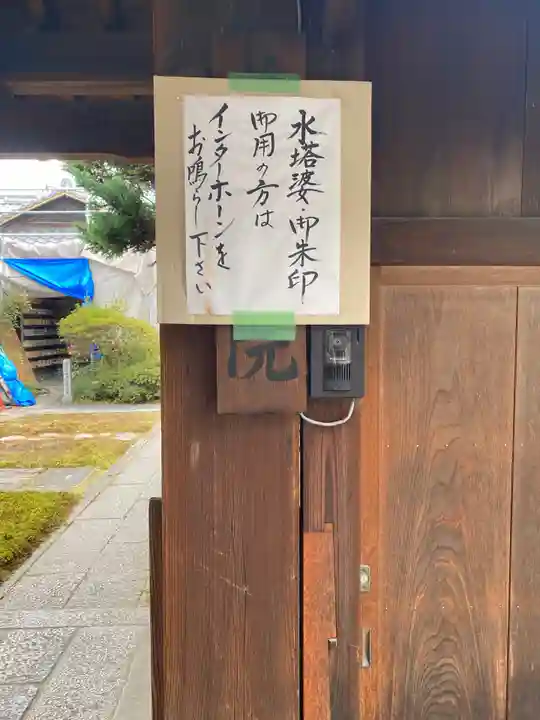 水塔婆・御朱印
御用の方は
インターホーンを
お鳴らし下さい
院